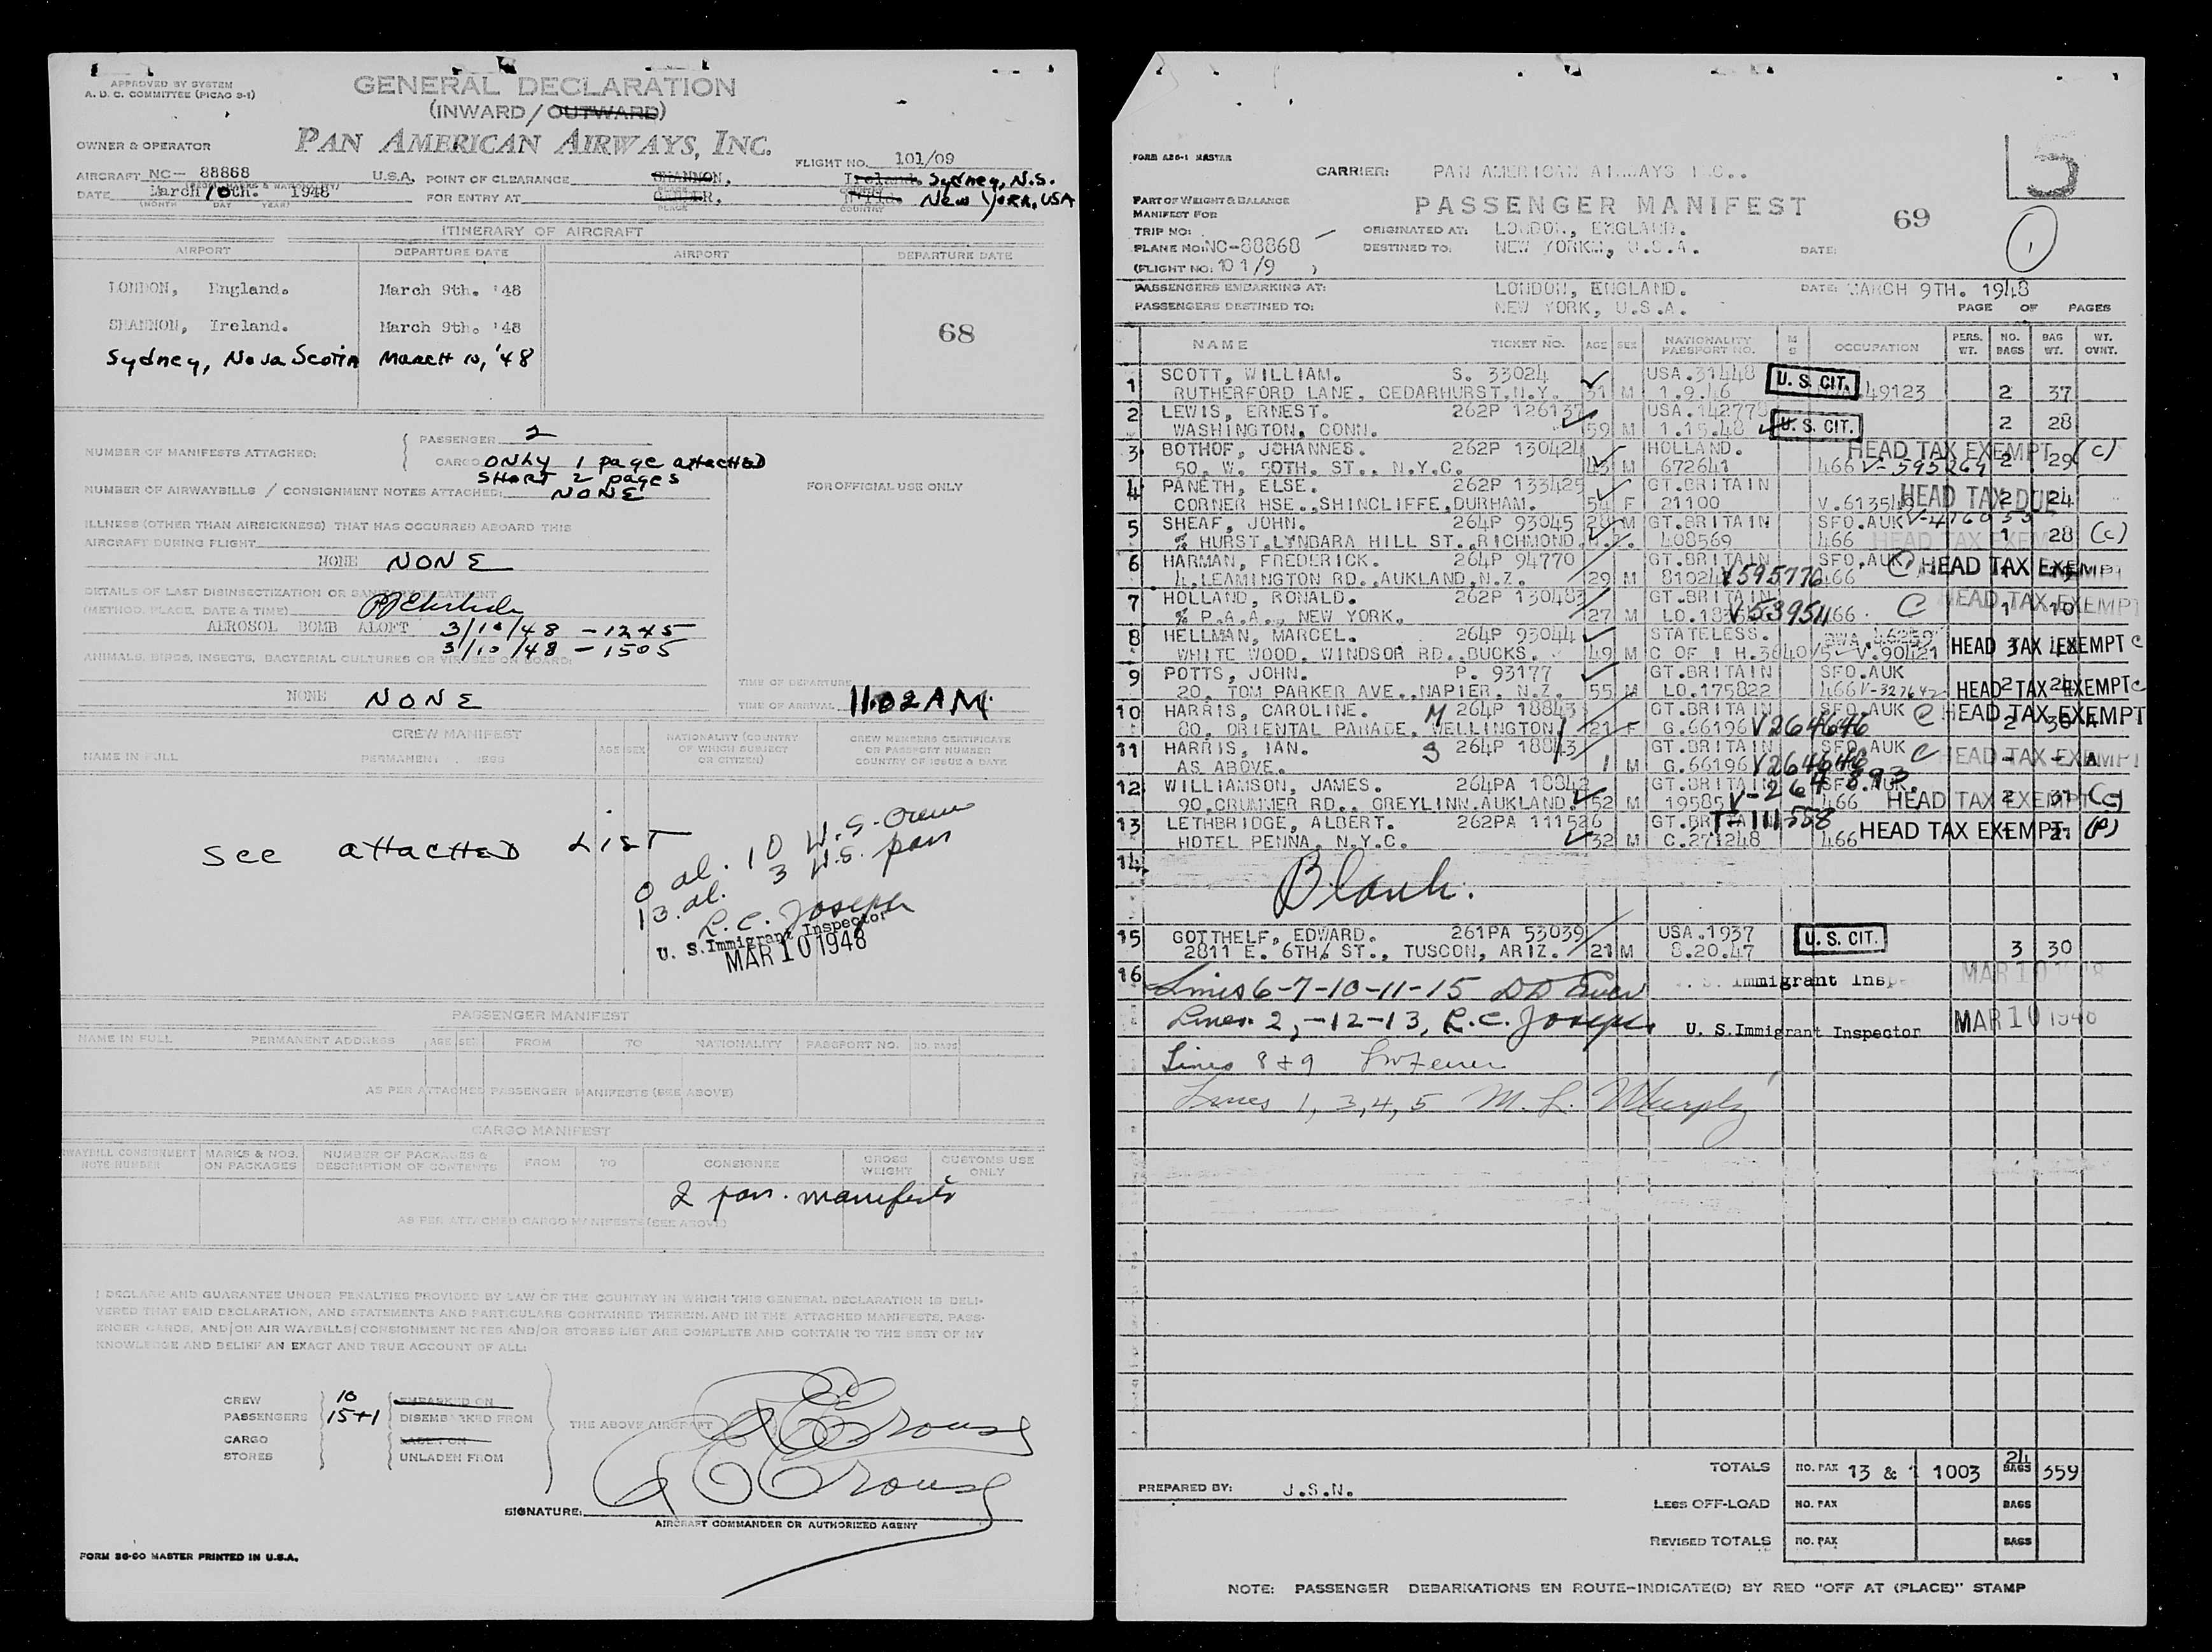 APPROVED BY SYSTEM
A. D. C. COMMITTEE (PICAO 3-1)
GENERAL DECLARATION
(INWARD / OUTWARD)
OWNER & OPERATOR
PAN AMERICAN AIRWAYS, INC.
FLIGHT NO. 101/09
AIRCRAFT NC- 88868 U.S.A. POINT OF CLEARANCE SHANNON, Ireland. Sydney, N.S.
DATE March 10th. 1948 FOR ENTRY AT GANDER, Nfld. New York, USA
(MONTH DAY YEAR) PLACE COUNTRY
ITINERARY OF AIRCRAFT
AIRPORT DEPARTURE DATE AIRPORT DEPARTURE DATE
LONDON, England. March 9th. '48
SHANNON, Ireland. March 9th. '48
68
Sydney, Nova Scotia March 10, '48
NUMBER OF MANIFESTS ATTACHED: PASSENGER 2
CARGO ONLY 1 page attacHED
SHORT 2 pages
NUMBER OF AIRWAYBILLS / CONSIGNMENT NOTES ATTACHED: NONE
FOR OFFICIAL USE ONLY
ILLNESS (OTHER THAN AIRSICKNESS) THAT HAS OCCURRED ABOARD THIS
AIRCRAFT DURING FLIGHT
NONE NONE
DETAILS OF LAST DISINSECTIZATION OR SANITARY TREATMENT
(METHOD, PLACE, DATE & TIME)
AEROSOL BOMB ALOFT 3/10/48 - 1245
3/10/48 - 1505
ANIMALS, BIRDS, INSECTS, BACTERIAL CULTURES OR VIRUSES ON BOARD:
NONE NONE
TIME OF DEPARTURE
TIME OF ARRIVAL 11:02 AM
CREW MANIFEST
NAME IN FULL PERMANENT ADDRESS AGE SEX NATIONALITY (COUNTRY OF WHICH SUBJECT OR CITIZEN) CREW MEMBERS CERTIFICATE OR PASSPORT NUMBER COUNTRY OF ISSUE & DATE
See attacHED LIST
0 al. 10 U.S. Crew
13 al. 3 U.S. pass
R. C. Joseph
U. S. Immigrant Inspector
MAR 10 1948
PASSENGER MANIFEST
NAME IN FULL PERMANENT ADDRESS AGE SEX FROM TO NATIONALITY PASSPORT NO. NO. BAGS
AS PER ATTACHED PASSENGER MANIFESTS (SEE ABOVE)
CARGO MANIFEST
WAYBILL CONSIGNMENT NOTE NUMBER MARKS & NOS. ON PACKAGES NUMBER OF PACKAGES & DESCRIPTION OF CONTENTS FROM TO CONSIGNEE GROSS WEIGHT CUSTOMS USE ONLY
2 pass. manifests
AS PER ATTACHED CARGO MANIFESTS (SEE ABOVE)
I DECLARE AND GUARANTEE UNDER PENALTIES PROVIDED BY LAW OF THE COUNTRY IN WHICH THIS GENERAL DECLARATION IS DELI-
VERED THAT SAID DECLARATION, AND STATEMENTS AND PARTICULARS CONTAINED THEREIN, AND IN THE ATTACHED MANIFESTS, PASS-
ENGER CARDS, AND/OR AIR WAYBILLS/CONSIGNMENT NOTES AND/OR STORES LIST ARE COMPLETE AND CONTAIN TO THE BEST OF MY
KNOWLEDGE AND BELIEF AN EXACT AND TRUE ACCOUNT OF ALL:
CREW 10 EMBARKED ON
PASSENGERS 15+1 DISEMBARKED FROM THE ABOVE AIRCRAFT
CARGO LADEN ON
STORES UNLADEN FROM
SIGNATURE:
AIRCRAFT COMMANDER OR AUTHORIZED AGENT
FORM 36-90 MASTER PRINTED IN U.S.A.
5
FORM 626-1 MASTER
CARRIER: PAN AMERICAN AIRWAYS INC..
PART OF WEIGHT & BALANCE
MANIFEST FOR
PASSENGER MANIFEST
69
1
TRIP NO: ORIGINATED AT: LONDON, ENGLAND.
PLANE NO: NC-88868 DESTINED TO: NEW YORKM, U.S.A. DATE:
(FLIGHT NO: 101/9 )
PASSENGERS EMBARKING AT: LONDON, ENGLAND. DATE: MARCH 9TH. 1948
PASSENGERS DESTINED TO: NEW YORK, U.S.A. PAGE OF PAGES
NAME TICKET NO. AGE SEX NATIONALITY PASSPORT NO. M S OCCUPATION PERS. WT. NO. BAGS BAG WT. WT. OVNT.
1 SCOTT, WILLIAM. S. 33024 USA.31448 U. S. CIT.
RUTHERFORD LANE, CEDARHURST,N.Y. 31 M 1.9.46 49123 2 37
2 LEWIS, ERNEST. 262P 126137 USA.142779
WASHINGTON, CONN. 59 M 1.15.48 U. S. CIT. 2 28
3 BOTHOF, JOHANNES. 262P 130424 HOLLAND. HEAD TAX EXEMPT (C)
50. W. 50TH. ST., N.Y.C. 43 M 672641 466 V-595269 2 29
4 PANETH, ELSE. 262P 133425 GT.BRITAIN HEAD TAX DUE
CORNER HSE.,SHINCLIFFE,DURHAM. 54 F 21100 V.613549 2 24
5 SHEAF, JOHN. 264P 93045 28 M GT.BRITAIN SFO.AUK
% HURST,LYNDARA HILL ST.,RICHMOND, 408569 466 HEAD TAX EXEM 1 28 (C)
6 HARMAN, FREDERICK. 264P 94770 GT.BRITAIN SFO.AUK C HEAD TAX EXEMPT
4.LEAMINGTON RD.,AUKLAND,N.Z. 29 M 81024 V595776 466
7 HOLLAND, RONALD. 262P 130483 GT.BRITAIN HEAD TAX EXEMPT
% P.A.A., NEW YORK. 27 M V53954 466 C 1 10
8 HELLMAN, MARCEL. 264P 93044 STATELESS. HEAD TAX EXEMPT C
WHITE WOOD, WINDSOR RD.,BUCKS. 49 M C OF I H.3640/5 V.90421 3 48
9 POTTS, JOHN. P. 93177 GT.BRITAIN SFO.AUK
20, TOM PARKER AVE.,NAPIER, N.Z. 55 M LO.175822 466 V-327642 HEAD TAX EXEMPT C 2 24
10 HARRIS, CAROLINE. M 264P 18843 GT.BRITAIN SFO.AUK C HEAD TAX EXEMPT
80, ORIENTAL PARADE, WELLINGTON 21 F G.66196 V264646 2 30 A
11 HARRIS, IAN. S 264P 18843 GT.BRITAIN SFO.AUK C HEAD TAX EXEMPT
AS ABOVE. 1 M G.66196 V264646 - - A
12 WILLIAMSON, JAMES. 264PA 18842 GT.BRITAIN SFO.AUK.
90,CRUMMER RD., GREYLINN.AUKLAND. 52 M 19585 V-264893 466 HEAD TAX EXEMPT 2 37 (C)
13 LETHBRIDGE, ALBERT. 262PA 111526 GT.BRITAIN T-111558 HEAD TAX EXEMPT (P)
HOTEL PENNA, N.Y.C. 32 M C.271248 466
14
Blank.
15 GOTTHELF, EDWARD. 261PA 53039 USA.1937 U. S. CIT.
2811 E. 6TH% ST., TUSCON, ARIZ. 21 M 8.20.47 3 30
16 Lines 6-7-10-11-15 Immigrant Insp MAR 10 1948
Lines 2,-12-13, R.C. Joseph U. S. Immigrant Inspector MAR 10 1948
Lines 8 + 9
Lines 1, 3, 4, 5 M. L. Murphy
TOTALS NO. PAX 13 & 1 1003 24 BAGS 359
PREPARED BY: J.S.N.
LESS OFF-LOAD NO. PAX BAGS
REVISED TOTALS NO. PAX BAGS
NOTE: PASSENGER DEBARKATIONS EN ROUTE-INDICATE(D) BY RED "OFF AT (PLACE)" STAMP